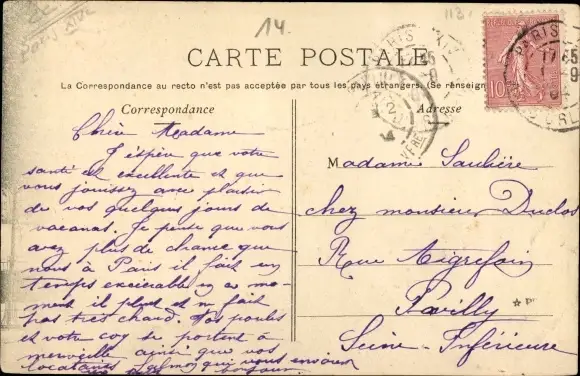 14.
118
CARTE POSTALE
La Correspondance au recto n'est pas acceptée par tous les pays étrangers. (Se renseign
Correspondance
Adresse
10
PARIS
17 45
PARIS
Chère Madame
J'espère que votre
santé est excellente et que
vous jouissez avec plaisir
de vos quelques jours de
vacances. Je pense que vous
avez plus de chance que
nous à Paris il fait un
temps execrable en ce mo-
ment il pleut et ne fait
pas très chaud. Vos poules
et votre coq se portent à
merveille ainsi que vos
locataires qui vous envoient
bonjour
Madame Saulière
chez monsieur Duclos
Rue Aigrefoin
Pavilly
Seine-Inférieure